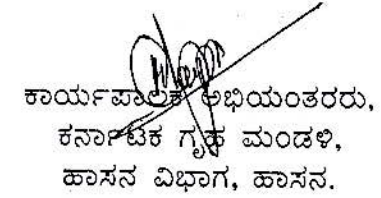 ಕಾರ್ಯಪಾಲಕ ಅಭಿಯಂತರರು,
ಕರ್ನಾಟಕ ಗೃಹ ಮಂಡಳಿ,
ಹಾಸನ ವಿಭಾಗ, ಹಾಸನ.